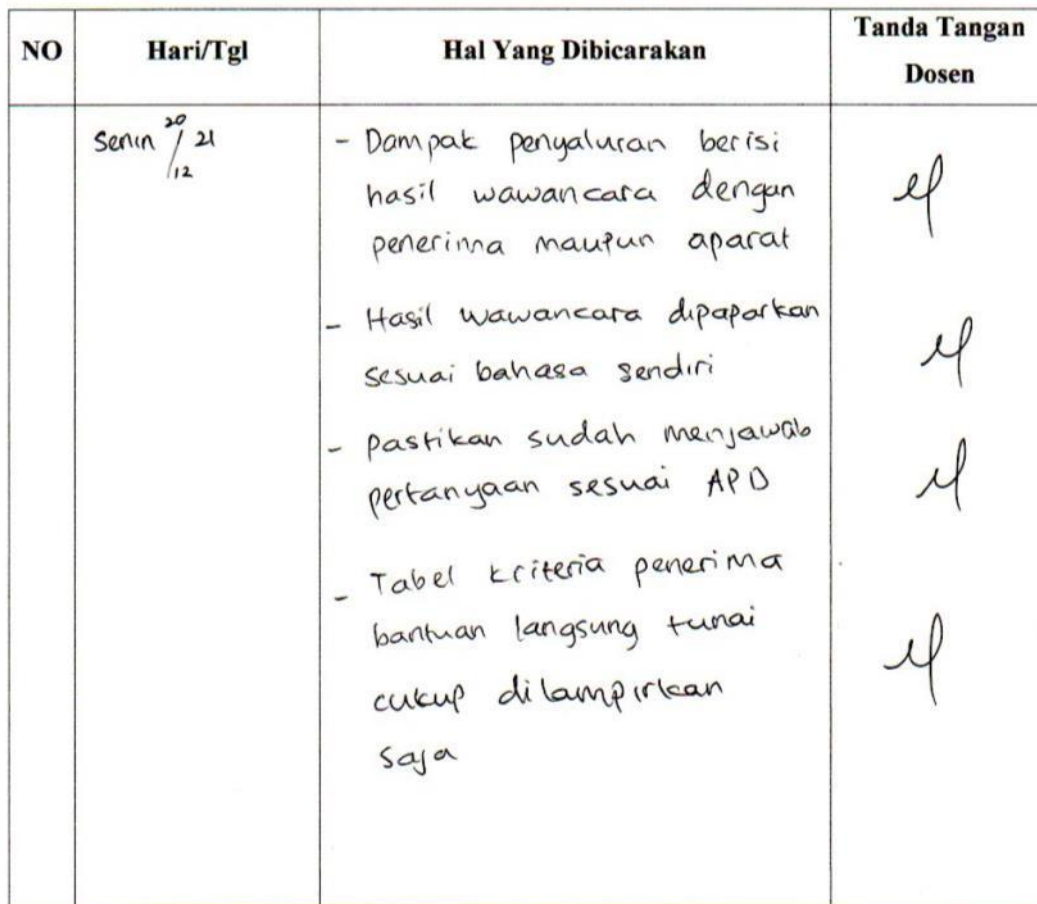 NO Hari/Tgl Hal Yang Dibicarakan Tanda Tangan Dosen
Senin 20/12 21
- Dampak penyaluran berisi
hasil wawancara dengan
penerima maupun aparat
- Hasil wawancara dipaparkan
sesuai bahasa sendiri
- pastikan sudah menjawab
pertanyaan sesuai APD
- Tabel kriteria penerima
bantuan langsung tunai
cukup dilampirkan
saja